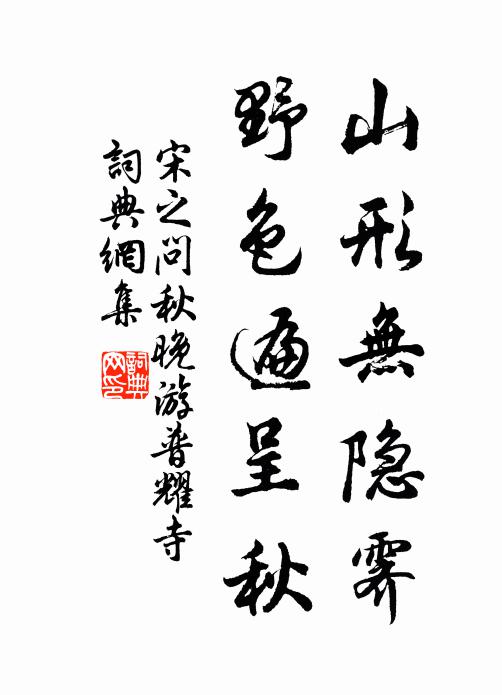 山形無隐霁
野色遍呈秋
宋之问秋晚游普耀寺
詞典網集
詞典网印